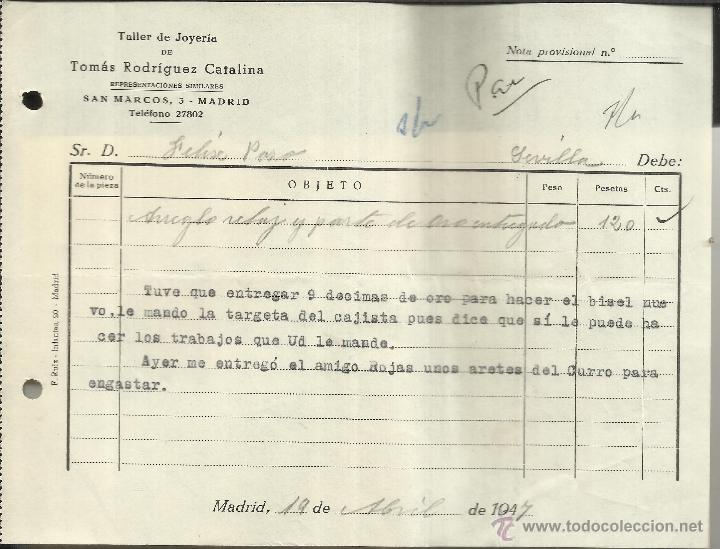 Taller de Joyería
DE
Tomás Rodríguez Catalina
REPRESENTACIONES SIMILARES
SAN MARCOS, 3 - MADRID
Teléfono 27802
Nota provisional n.º
Sr. D. Félix Pozo Sevilla Debe:
Número de la pieza OBJETO Peso Pesetas Cts.
Arreglo reloj y parte de oro entregado 120
Tuve que entregar 9 decimas de oro para hacer el bisel nue
vo, le mando la targeta del cajista pues dice que sí le puede ha
cer los trabajos que Ud le mande.
Ayer me entregó el amigo Rojas unos aretes del Curro para
engastar.
Madrid, 19 de Abril de 1947
todocoleccion
www.todocoleccion.net